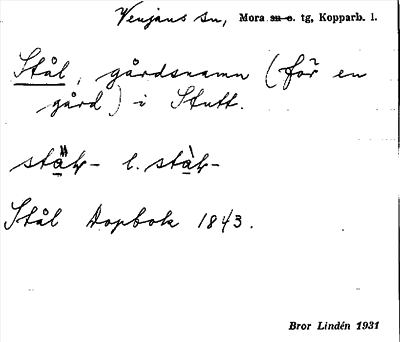 Venjans sn, Mora sn o. tg, Kopparb. l.
Stål, gårdsnamn (för en
gård) i Stutt.
l.
Stål Dopbok 1843.
Bror Lindén 1931